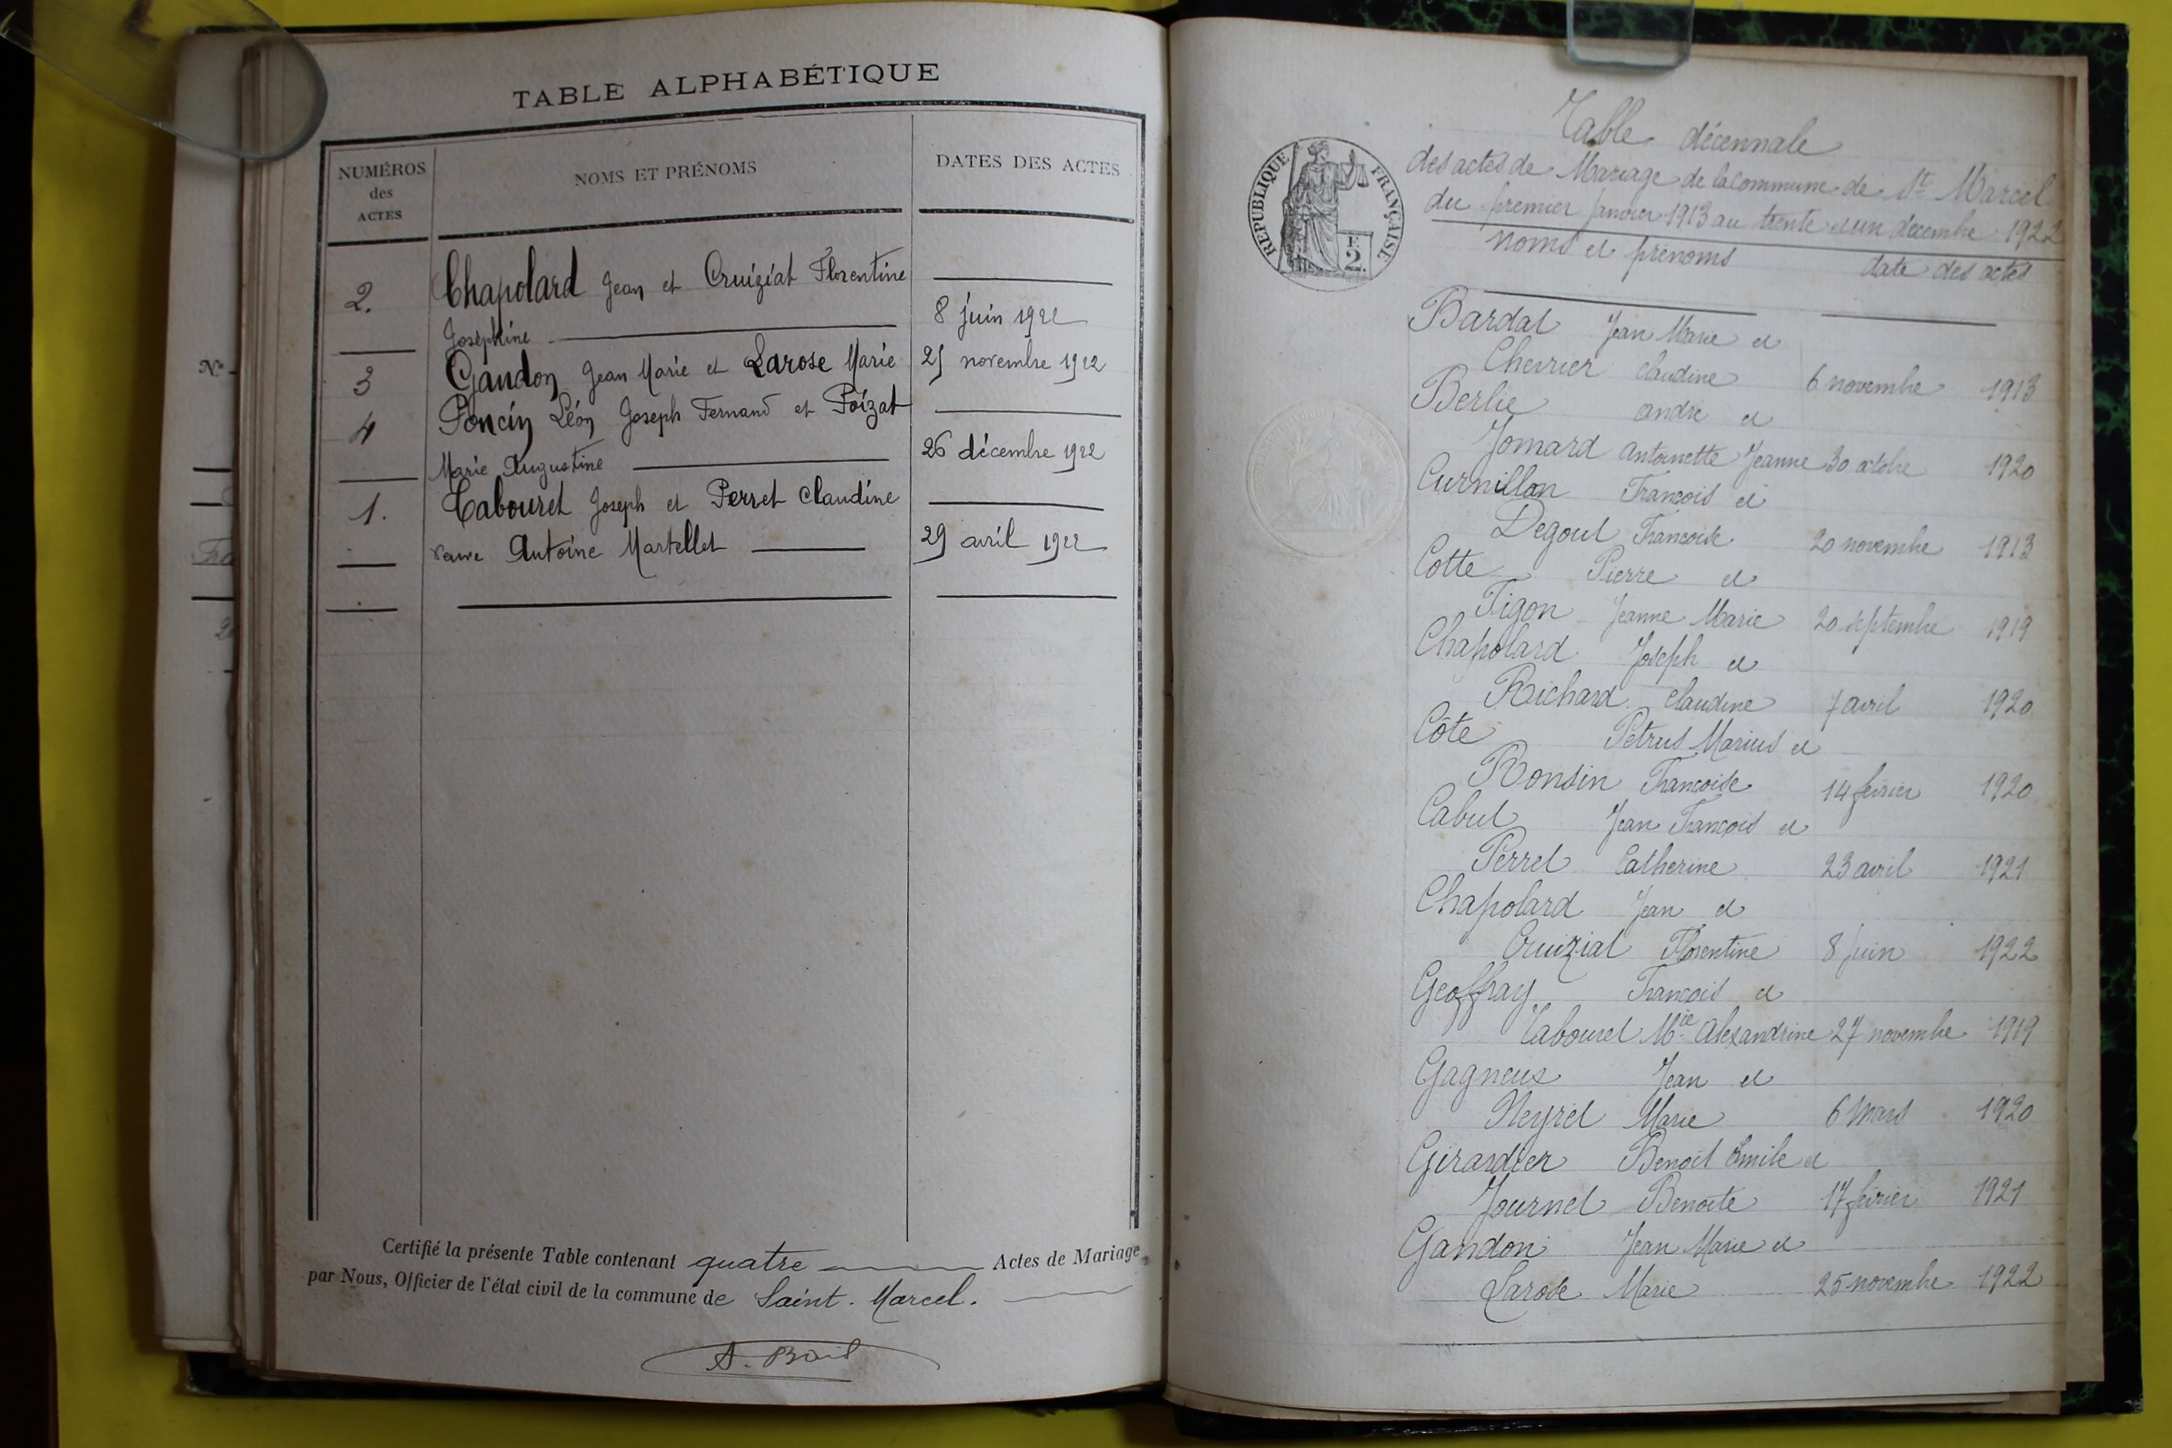 TABLE ALPHABÉTIQUE
NUMÉROS
des
ACTES
NOMS ET PRÉNOMS
DATES DES ACTES
2. Chapolard Jean et Cruiziat Florentine
Joséphine 8 juin 1922
3 Gandon Jean Marie et Larose Marie 25 novembre 1922
4 Poncin Léon Joseph Fernand et Poizat
Marie Augustine 26 décembre 1922
1. Tabouret Joseph et Perret Claudine
veuve Antoine Martellet 29 avril 1922
Certifié la présente Table contenant quatre Actes de Mariage
par Nous, Officier de l'état civil de la commune de Saint-Marcel.
Nº
RÉPUBLIQUE FRANÇAISE
F.
2.
Table décennale
des actes de Mariage de la commune de St Marcel
du premier janvier 1913 au trente et un décembre 1922
noms et prénoms date des actes
Bardat Jean Marie et
Chevrier Claudine 6 novembre 1913
Berlie andré et
Jomard Antoinette Jeanne 30 octobre 1920
Curnillon François et
Degout Françoise 20 novembre 1913
Cotte Pierre et
Tigon Jeanne Marie 20 septembre 1919
Chapolard Joseph et
Richard Claudine 7 avril 1920
Côte Pétrus Marius et
Ronsin Françoise 14 février 1920
Cabut Jean François et
Perret Catherine 23 avril 1921
Chapolard Jean et
Cruiziat Florentine 8 juin 1922
Geoffray François et
Tabouret Mie Alexandrine 27 novembre 1919
Gagneux Jean et
Neyret Marie 6 mars 1920
Girardier Benoît Emile et
Journet Benoite 17 février 1921
Gandon Jean Marie et
Larose Marie 25 novembre 1922